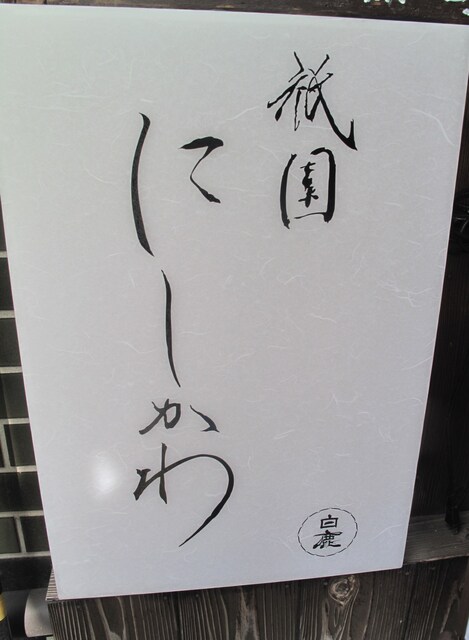 祇園
にしかわ
白鹿